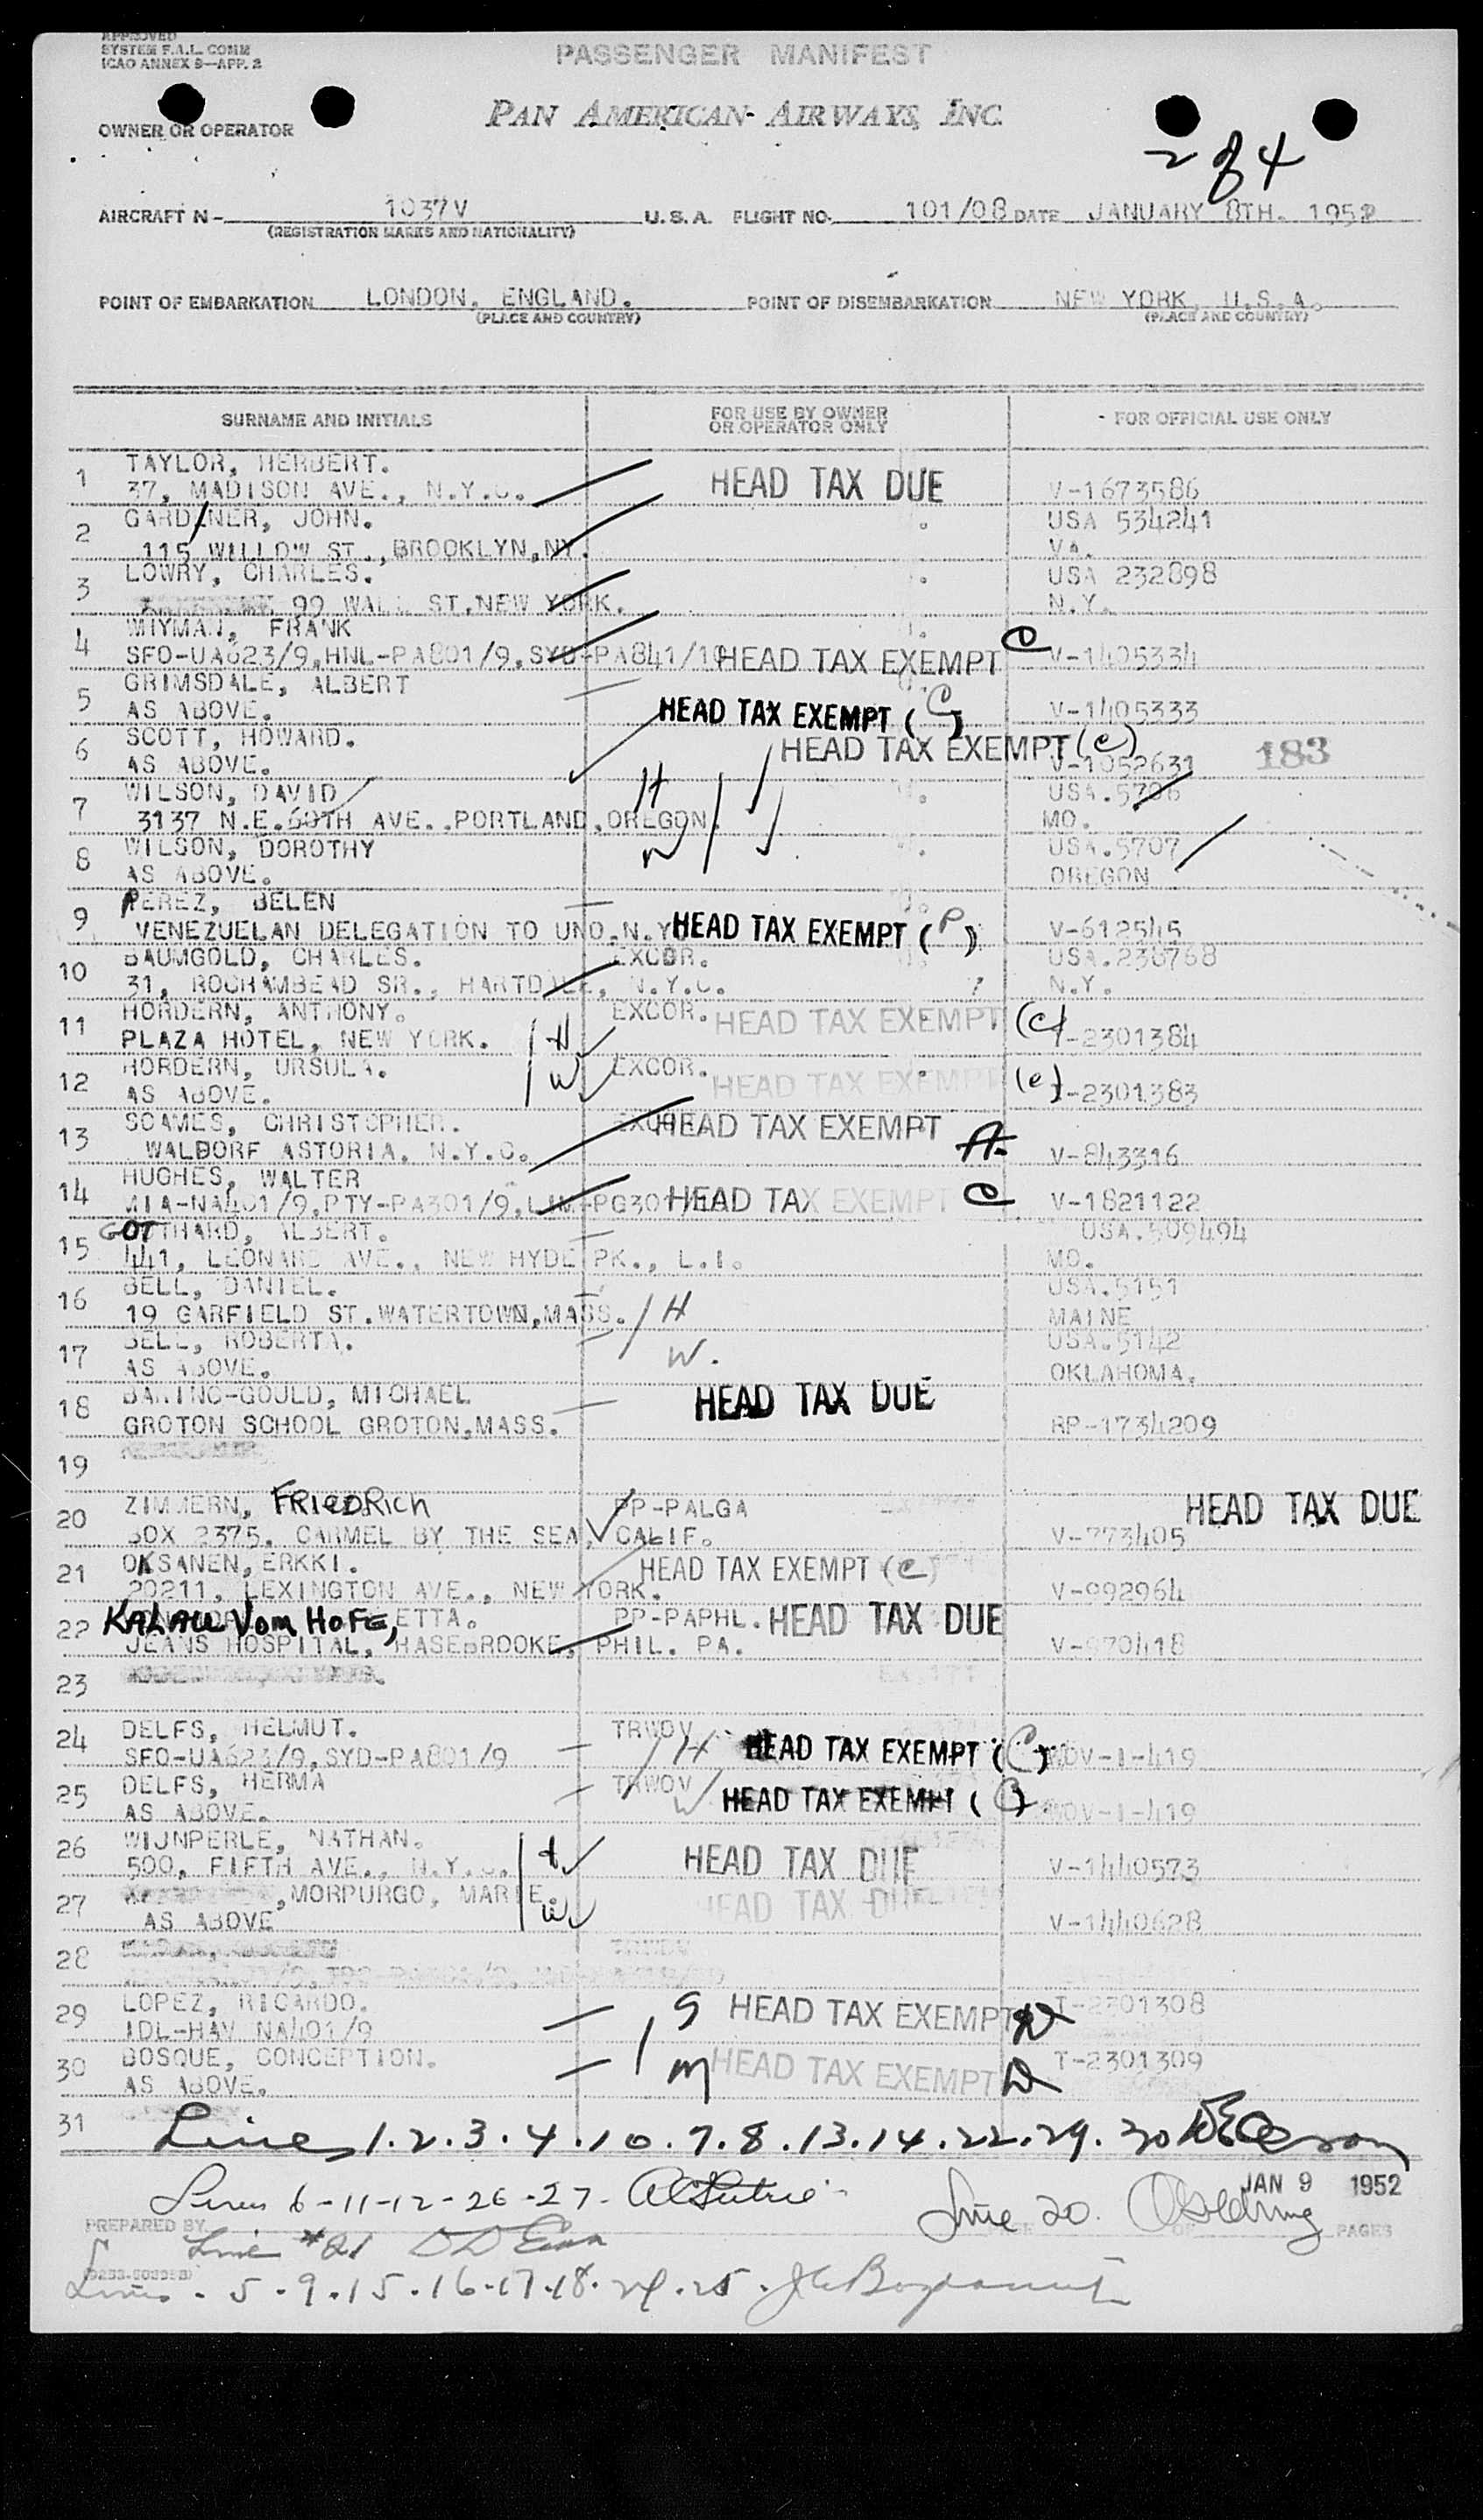 APPROVED
SYSTEM F.A.L. COMM
ICAO ANNEX 9—APP. 2
PASSENGER MANIFEST
PAN AMERICAN AIRWAYS, INC.
OWNER OR OPERATOR
2 of 4
AIRCRAFT N- 1037V U.S.A. FLIGHT NO. 101/08 DATE JANUARY 8TH. 1952
(REGISTRATION MARKS AND NATIONALITY)
POINT OF EMBARKATION LONDON, ENGLAND. POINT OF DISEMBARKATION NEW YORK, U.S.A.
(PLACE AND COUNTRY) (PLACE AND COUNTRY)
SURNAME AND INITIALS FOR USE BY OWNER OR OPERATOR ONLY FOR OFFICIAL USE ONLY
1 TAYLOR, HERBERT.
37, MADISON AVE., N.Y.C. HEAD TAX DUE V-1673586
2 GARDENER, JOHN. USA 534241
115 WILLOW ST., BROOKLYN,NY. VA.
3 LOWRY, CHARLES. USA 232898
99 WALL ST.NEW YORK. N.Y.
4 WHYMAN, FRANK
SFO-UA623/9,HNL-PA801/9,SYD-PA841/10 HEAD TAX EXEMPT C V-1405334
5 GRIMSDALE, ALBERT
AS ABOVE. HEAD TAX EXEMPT (C) V-1405333
6 SCOTT, HOWARD. HEAD TAX EXEMPT (C)
AS ABOVE. V-1052631 183
7 WILSON, DAVID H USA.5706
3137 N.E.60TH AVE.,PORTLAND,OREGON. MO.
8 WILSON, DOROTHY W USA.5707
AS ABOVE. OREGON
9 PEREZ, BELEN
VENEZUELAN DELEGATION TO UNO.N.Y. HEAD TAX EXEMPT (P) V-612545
10 BAUMGOLD, CHARLES. EXCOR. USA.238768
31, ROCHAMBEAD SR., HARTDALE, N.Y.C. N.Y.
11 HORDERN, ANTHONY. EXCOR. HEAD TAX EXEMPT (C)
PLAZA HOTEL, NEW YORK. H T-2301384
12 HORDERN, URSULA. W EXCOR. HEAD TAX EXEMPT (C)
AS ABOVE. T-2301383
13 SOAMES, CHRISTOPHER. EXCOR. HEAD TAX EXEMPT A-
WALDORF ASTORIA, N.Y.C. V-843316
14 HUGHES, WALTER
MIA-NA401/9,PTY-PA301/9,LIM-PG301/10 HEAD TAX EXEMPT C V-1821122
15 GOTTHARD, ALBERT. USA.509494
441, LEONARD AVE., NEW HYDE PK., L.I. MO.
16 BELL, DANIEL. USA.5151
19 GARFIELD ST.WATERTOWN,MASS. H MAINE
17 BELL, ROBERTA. W. USA.5142
AS ABOVE. OKLAHOMA.
18 BARING-GOULD, MICHAEL HEAD TAX DUE
GROTON SCHOOL GROTON,MASS. RP-1734209
19
20 ZIMMERN, FRIEDRICH PP-PALGA HEAD TAX DUE
BOX 2375, CARMEL BY THE SEA, CALIF. V-773405
21 OKSANEN, ERKKI. HEAD TAX EXEMPT (C)
20211, LEXINGTON AVE., NEW YORK. V-992964
22 KALAU VOM HOFE, ETTA. PP-PAPHL. HEAD TAX DUE
JEANS HOSPITAL, HASEBROOKE, PHIL. PA. V-970418
23
24 DELFS, HELMUT. TRWOV H HEAD TAX EXEMPT (C)
SFO-UA623/9,SYD-PA801/9 WOV-1-419
25 DELFS, HERMA TRWOV W HEAD TAX EXEMPT (C)
AS ABOVE. WOV-1-419
26 WIJNPERLE, NATHAN.
500, FIFTH AVE., N.Y.C. H HEAD TAX DUE V-1440573
27 ,MORPURGO, MARIE. W HEAD TAX DUE
AS ABOVE V-1440628
28
29 LOPEZ, RICARDO. S HEAD TAX EXEMPT D T-2301308
IDL-HAV NA401/9
30 BOSQUE, CONCEPTION. M HEAD TAX EXEMPT D T-2301309
AS ABOVE.
31
Lines 1.2.3.4.10.7.8.13.14.22.29.30
JAN 9 1952
Lines 6-11-12-26-27-
Line 20.
PREPARED BY PAGE OF PAGES
Line #21
Lines - 5.9.15.16.17.18.24.25.